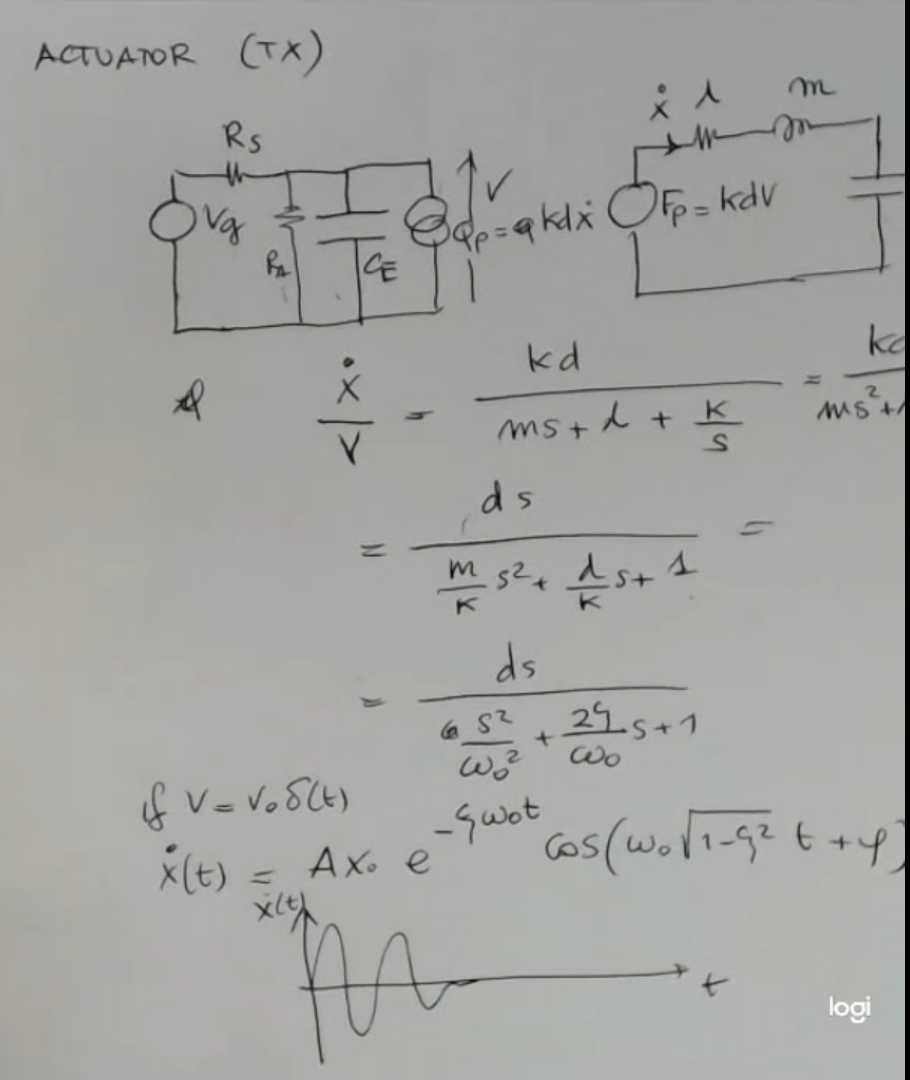 ACTUATOR (TX)
Rs
Vg
CE
V
Qp = kdẋ
ẋ λ m
Fp = kdV
ẋ/V = kd/(ms + λ + K/s) =
= ds/(m/K s² + λ/K s + 1) =
= ds/(s²/ω₀² + 2ζ/ω₀ s + 1)
if V = V₀ δ(t)
ẋ(t) = A x₀ e^(-ζω₀t) cos(ω₀ √(1-ζ²) t + φ)
ẋ(t)
t
logi